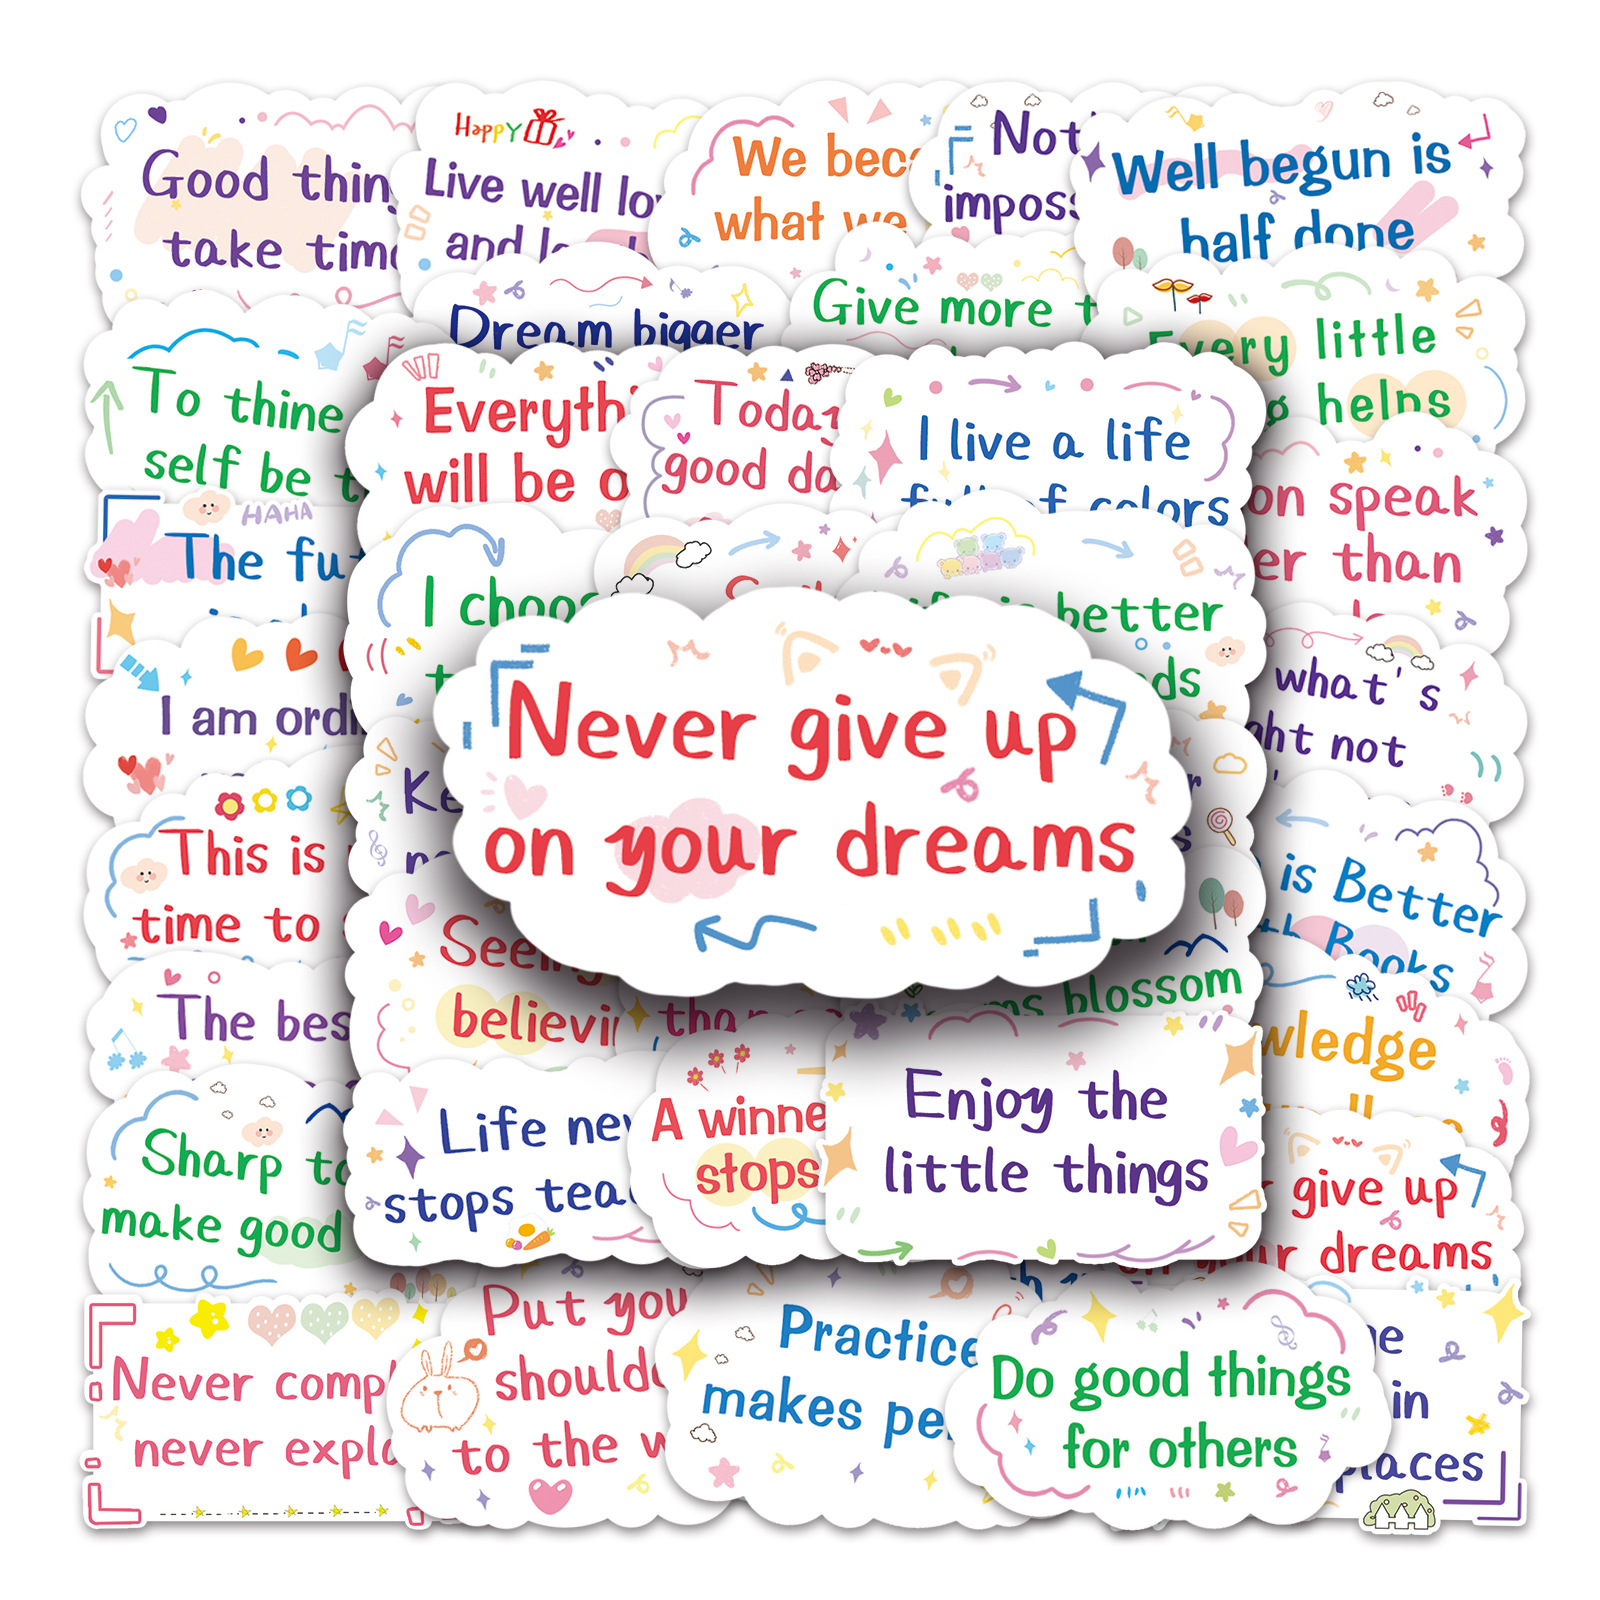 Good thin
take time
Happy
Live well lo
and l
We bec
what we
Not
imposs
Well begun is
half done
Dream bigger
Give more t
Every little
helps
To thine
self be t
Everyth
will be o
Today
good da
I live a life
full of colors
on speak
er than
HAHA
The fu
I choos
t
better
ds
what's
ght not
I am ordi
Ke
Never give up
on your dreams
This is
time to
is Better
Books
Seeing
believin
tha
ms blossom
The bes
wledge
Life nev
stops tea
A winne
stops
Enjoy the
little things
Sharp to
make good
give up
your dreams
Never comp
never expla
Put you
shoulde
to the w
Practice
makes pe
Do good things
for others
e
in
places